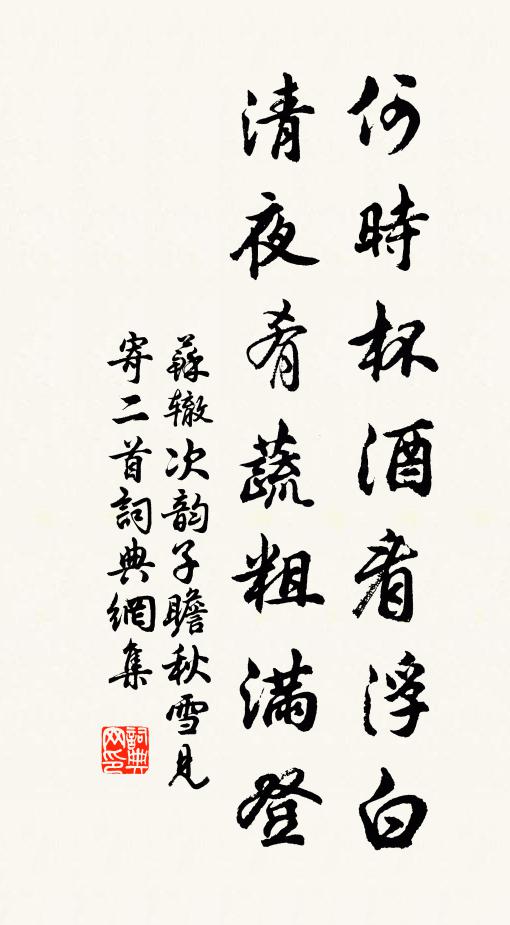 何時杯酒看浮白
清夜肴蔬粗滿登
蘇辙次韵子瞻秋雪見
寄二首詞典網集
詞典網印